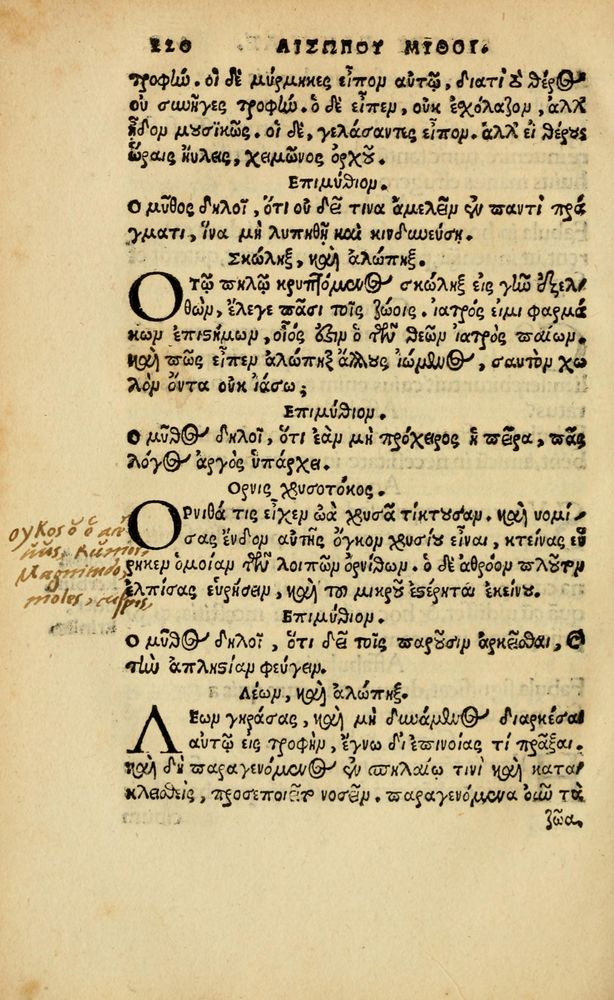 220 ΑΙΣΩΠΟΥ ΜΥΘΟΙ.
τροφἠν. οἱ δὲ μύρμηκες εἶπον αὐτῷ, διατί τὸ θέρος
οὐ συνῆγες τροφήν. ὁ δὲ εἶπεν, οὐκ ἐσχόλαζον, ἀλλ᾽
ᾖδον μουσικῶς. οἱ δὲ, γελάσαντες εἶπον. ἀλλ᾽ εἰ θέρους
ὥραις ηὔλεις, χειμῶνος ὀρχοῦ.
Επιμύθιον.
Ο μῦθος δηλοῖ, ὅτι οὐ δεῖ τινα ἀμελεῖν ἐν παντὶ πρά
γματι, ἵνα μὴ λυπηθῇ καὶ κινδυνεύσῃ.
Σκώληξ, καὶ ἀλώπηξ.
Ο τῷ πηλῷ κρυπτόμενος σκώληξ εἰς γῆν ἐξελ
θὼν, ἔλεγε πᾶσι τοῖς ζώοις. ἰατρός εἰμι φαρμά
κων ἐπιστήμων, οἷός ἐστιν ὁ τῶν θεῶν ἰατρὸς παίων.
καὶ πῶς εἶπεν ἀλώπηξ ἄλλους ἰώμενος, σαυτὸν χω
λὸν ὄντα οὐκ ἰάσω;
Επιμύθιον.
Ο μῦθος δηλοῖ, ὅτι ἐὰν μὴ πρόχειρος ἡ πεῖρα, πᾶς
λόγος ἀργὸς ὑπάρχει.
Ορνις χρυσοτόκος.
ΟΡνιθά τις εἶχεν ὠὰ χρυσᾶ τίκτουσαν. καὶ νομί
σας ἔνδον αὐτῆς ὄγκον χρυσίου εἶναι, κτείνας εὕ
ρηκεν ὁμοίαν τῶν λοιπῶν ὀρνίθων. ὁ δὲ ἀθρόον πλοῦτον
ἐλπίσας εὑρήσειν, καὶ τοῦ μικροῦ ἐστέρηται ἐκείνου.
Επιμύθιον.
Ο μῦθος δηλοῖ, ὅτι δεῖ τοῖς παροῦσιν ἀρκεῖσθαι, καὶ
τὴν ἀπληστίαν φεύγειν.
Λέων, καὶ ἀλώπηξ.
ΛΕων γηράσας, καὶ μὴ δυνάμενος διαρκέσαι
αὑτῷ εἰς τροφὴν, ἔγνω δι᾽ ἐπινοίας τί πρᾶξαι.
καὶ δὴ παραγενόμενος ἐν σπηλαίῳ τινὶ καὶ κατα
κλειθεὶς, προσεποιεῖτο νοσεῖν. παραγενόμενα οὖν τὰ
ζῶα.
ογκος ὁ
Magnitudo,
moles,